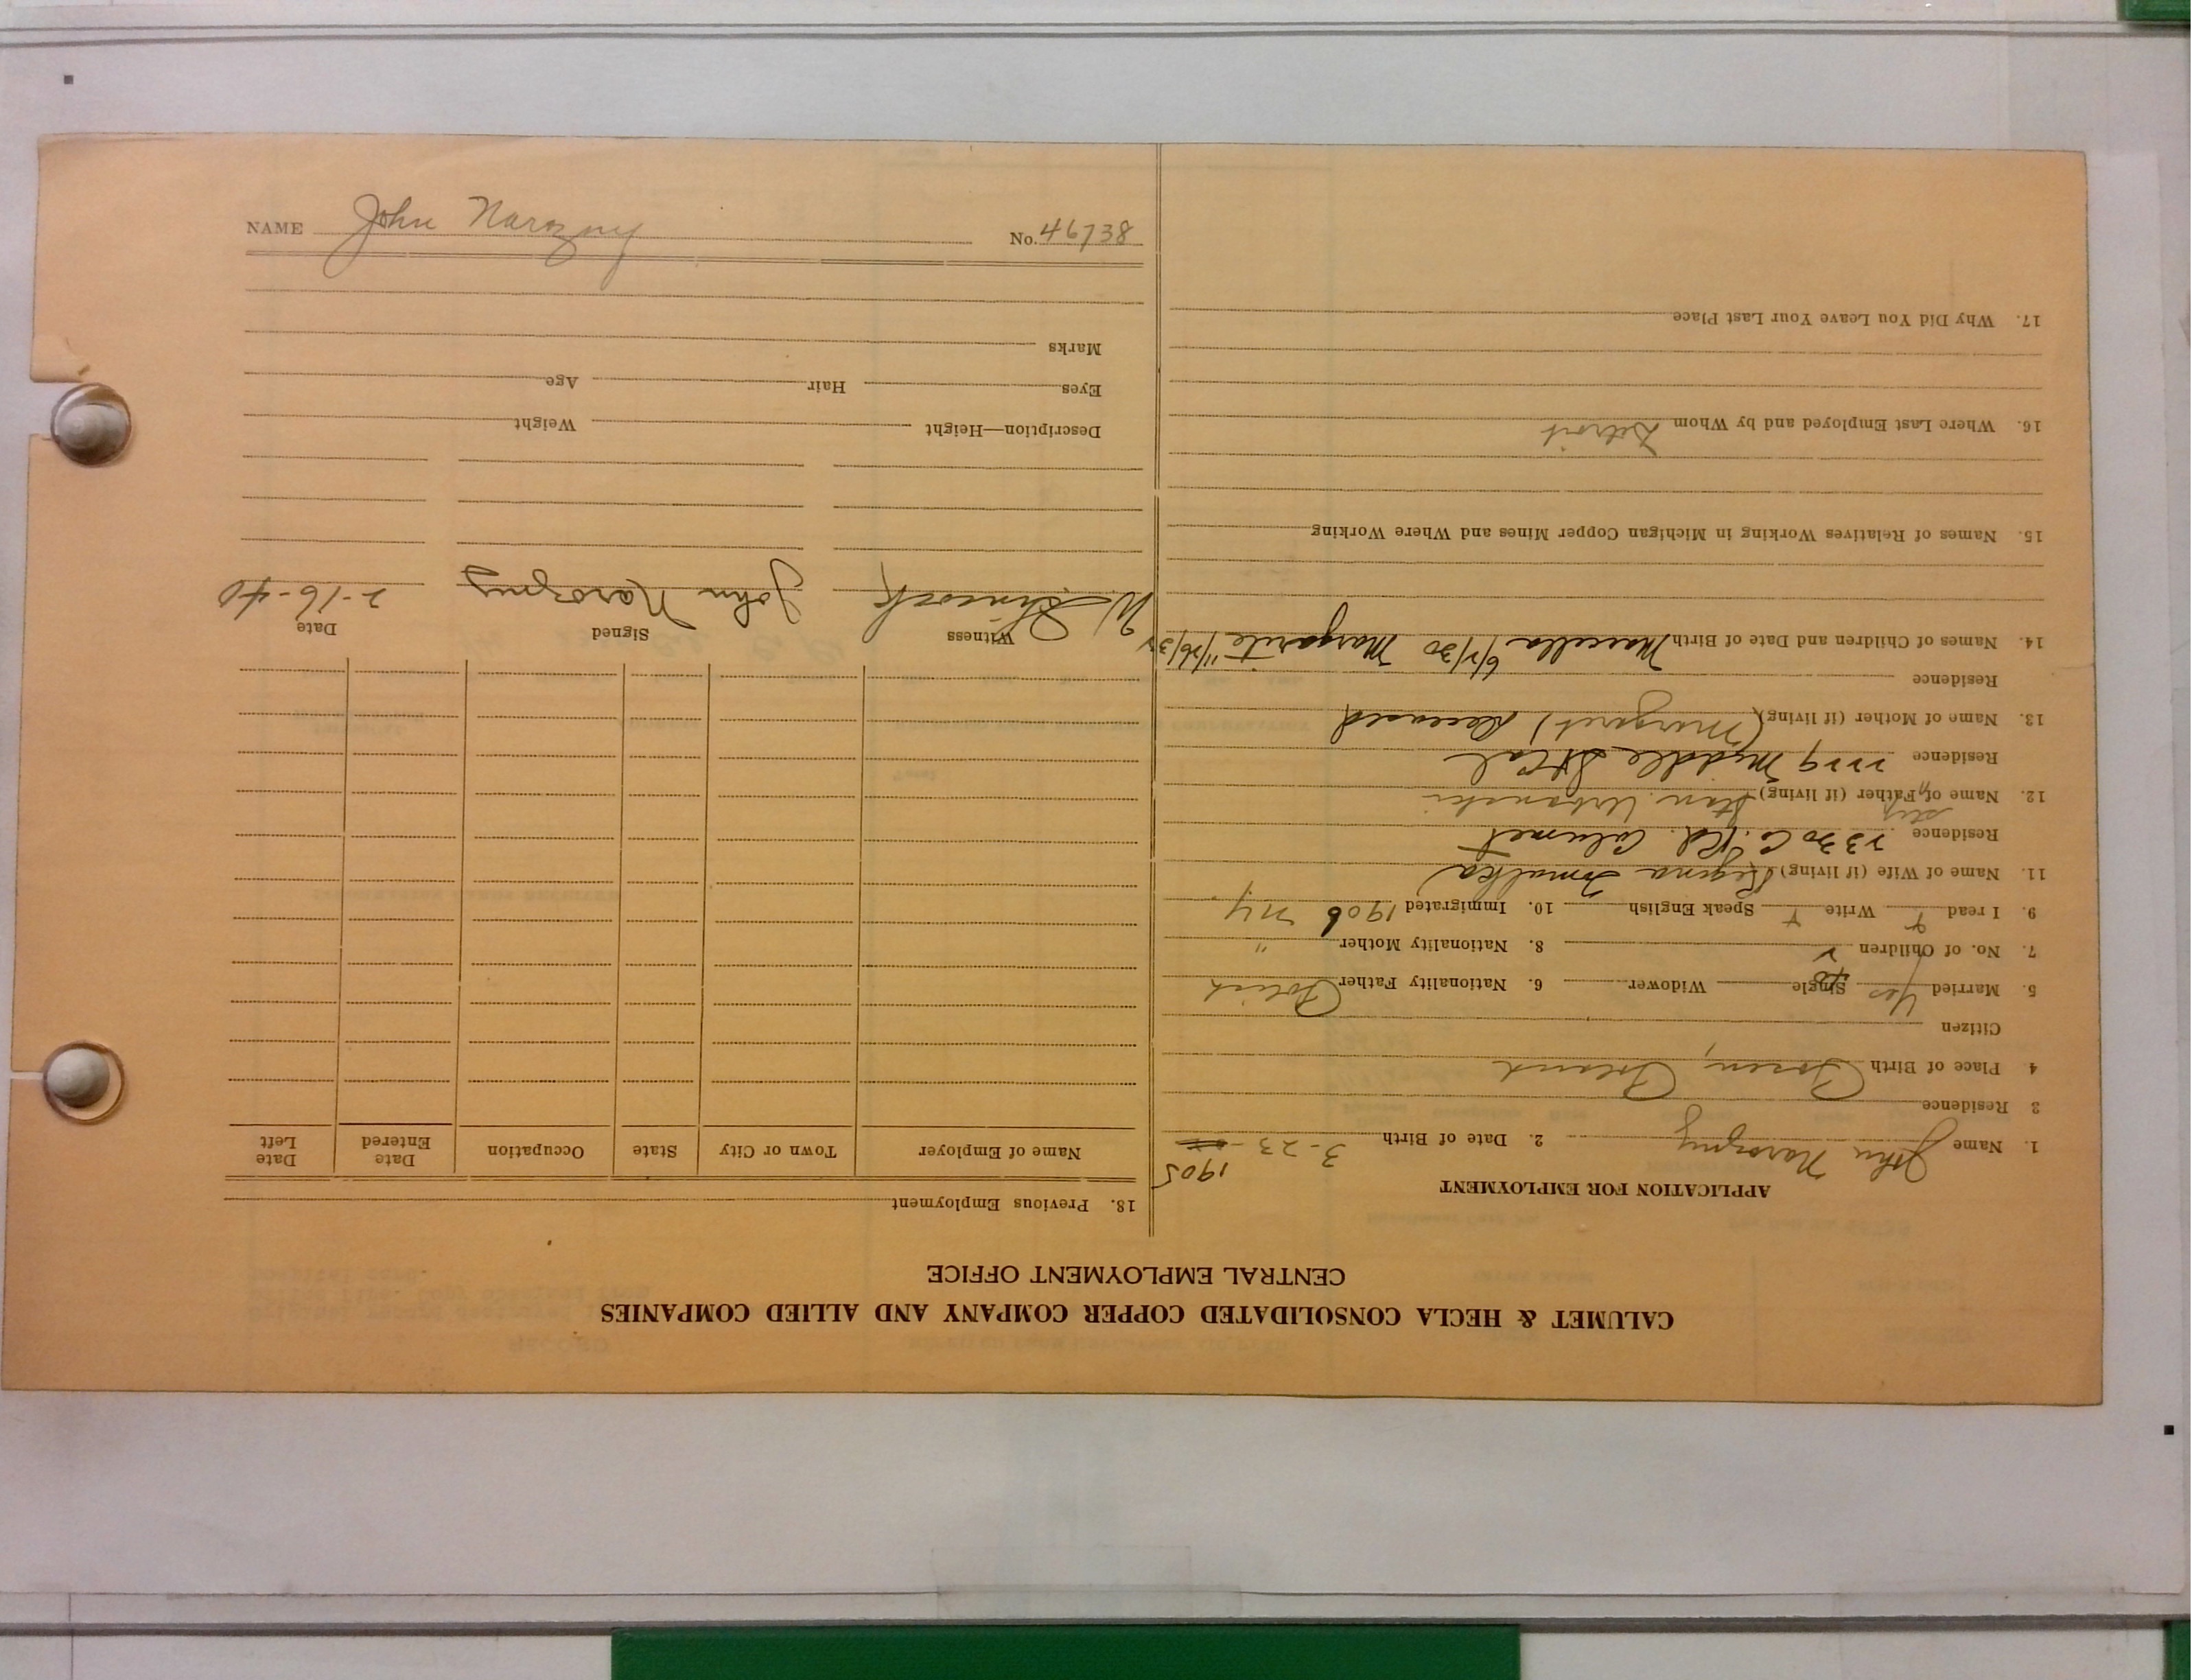 CALUMET & HECLA CONSOLIDATED COPPER COMPANY AND ALLIED COMPANIES
CENTRAL EMPLOYMENT OFFICE
APPLICATION FOR EMPLOYMENT
1. Name John Narozny 2. Date of Birth 3-23- 1905
3 Residence
4 Place of Birth Posen, Poland
Citizen
5. Married Yes Single Widower 6. Nationality Father Polish
7. No. of Children 2 8. Nationality Mother "
9. I read Y Write Y Speak English 10. Immigrated 1906 NY.
11. Name of Wife (if living) Regina Tomalka
Residence 2330 C. Rd. Calumet
12. Name of Step Father (if living) Stan. Urbanski
Residence 2229 Middle St Cal
13. Name of Mother (if living) (Margaret) Deceased
Residence
14. Names of Children and Date of Birth Marcella 6/2/30 Margarite 11/26/32
15. Names of Relatives Working in Michigan Copper Mines and Where Working
16. Where Last Employed and by Whom Detroit
17. Why Did You Leave Your Last Place
18. Previous Employment
Name of Employer Town or City State Occupation Date Entered Date Left
Witness Signed Date
W. John Narozny 2-16-40
Description—Height Weight
Eyes Hair Age
Marks
NAME John Narozny No. 46738